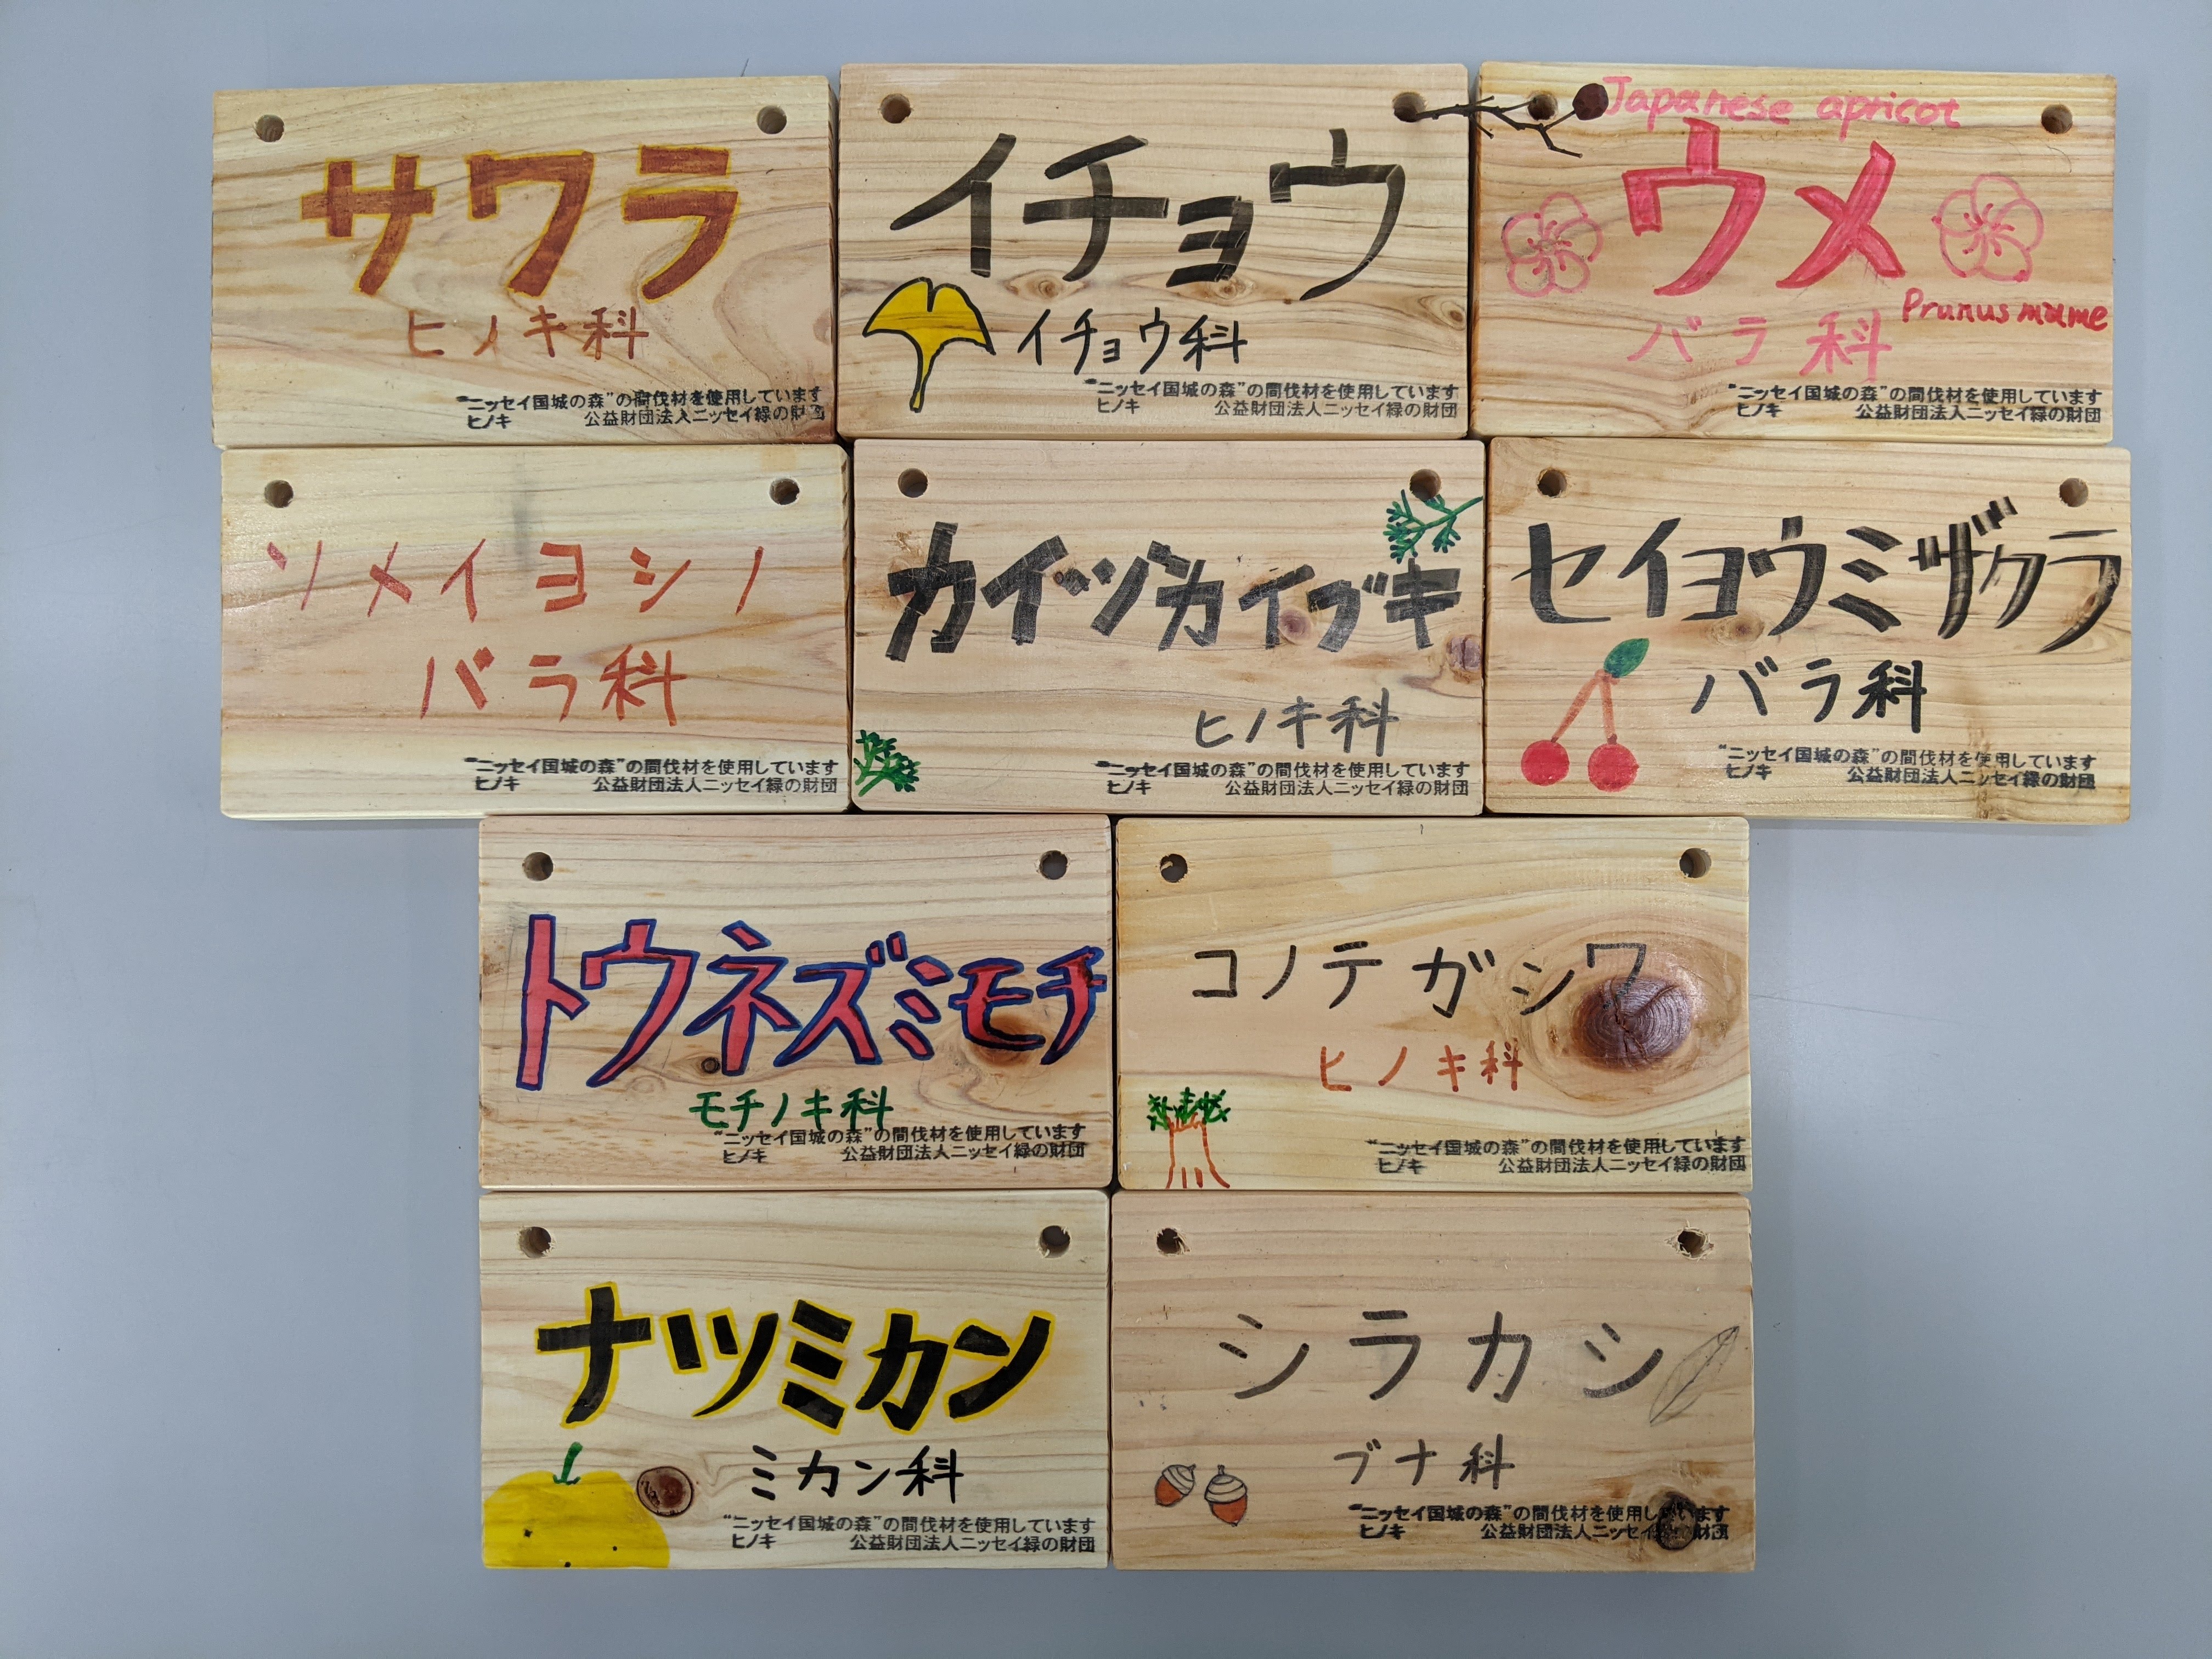 サワラ
ヒノキ科
"ニッセイ国城の森"の間伐材を使用しています
ヒノキ 公益財団法人ニッセイ緑の財団
イチョウ
イチョウ科
"ニッセイ国城の森"の間伐材を使用しています
ヒノキ 公益財団法人ニッセイ緑の財団
Japanese apricot
ウメ
Prunus mume
バラ科
"ニッセイ国城の森"の間伐材を使用しています
ヒノキ 公益財団法人ニッセイ緑の財団
ソメイヨシノ
バラ科
"ニッセイ国城の森"の間伐材を使用しています
ヒノキ 公益財団法人ニッセイ緑の財団
カイヅカイブキ
ヒノキ科
"ニッセイ国城の森"の間伐材を使用しています
ヒノキ 公益財団法人ニッセイ緑の財団
セイヨウミザクラ
バラ科
"ニッセイ国城の森"の間伐材を使用しています
ヒノキ 公益財団法人ニッセイ緑の財団
トウネズミモチ
モチノキ科
"ニッセイ国城の森"の間伐材を使用しています
ヒノキ 公益財団法人ニッセイ緑の財団
コノテガシワ
ヒノキ科
"ニッセイ国城の森"の間伐材を使用しています
ヒノキ 公益財団法人ニッセイ緑の財団
ナツミカン
ミカン科
"ニッセイ国城の森"の間伐材を使用しています
ヒノキ 公益財団法人ニッセイ緑の財団
シラカシ
ブナ科
"ニッセイ国城の森"の間伐材を使用しています
ヒノキ 公益財団法人ニッセイ緑の財団